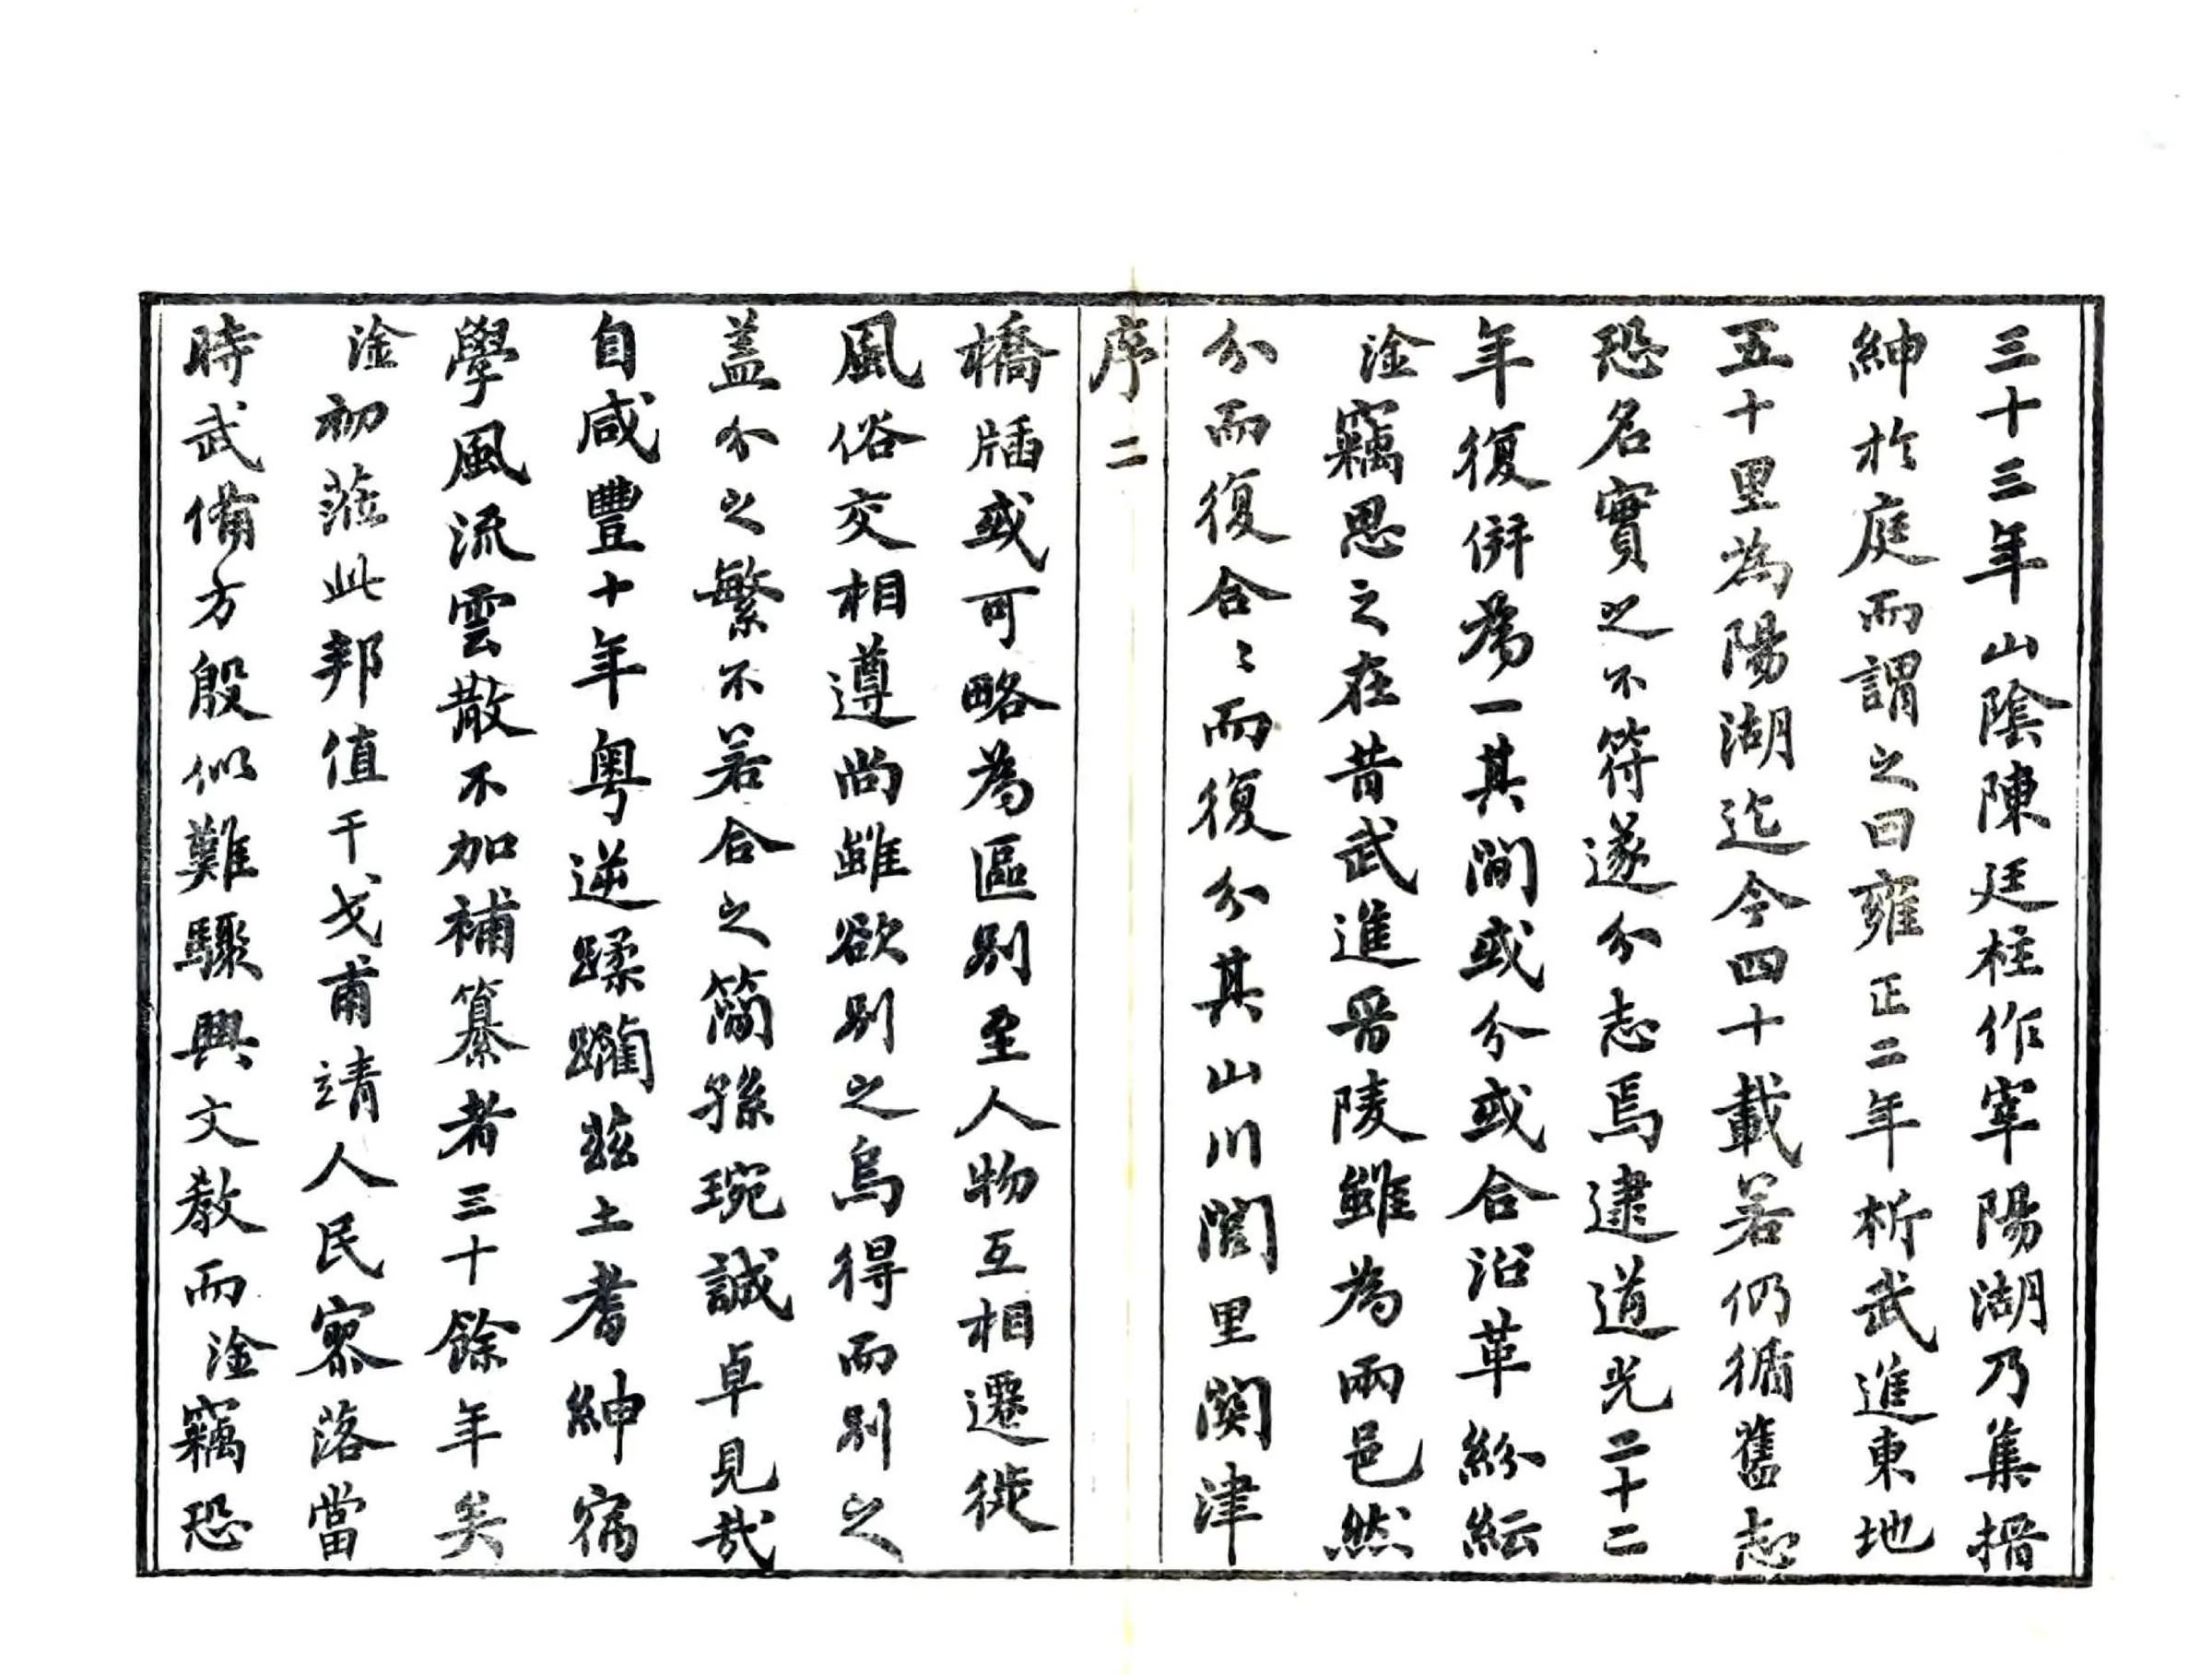 三十三年山陰陳廷柱作宰陽湖乃集搢
紳於庭而謂之曰雍正二年析武進東地
五十里為陽湖迄今四十載若仍循舊志
恐名實之不符遂分志焉逮道光二十二
年復併為一其間或分或合沿革紛紜
淦竊思之在昔武進晉陵雖為兩邑然
分而復合〻而復分其山川閭里関津
序 二
橋牐或可略為區別至人物互相遷徙
風俗交相遵尚雖欲別之烏得而別之
蓋分之繁不若合之簡孫琬誠卓見哉
自咸豐十年粵逆蹂躪茲土耆紳宿
學風流雲散不加補纂者三十餘年矣
淦初蒞此邦值干戈甫靖人民寥落當
時武備方殷似難驟興文教而淦竊恐